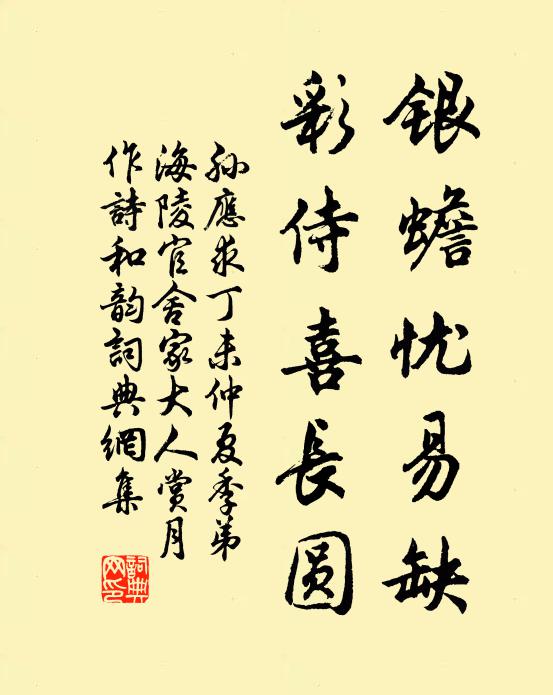 银蟾忧易缺
彩侍喜長圆
孙應求丁未仲夏季弟
海陵官舍家大人赏月
作詩和韵詞典網集
詞典
网印